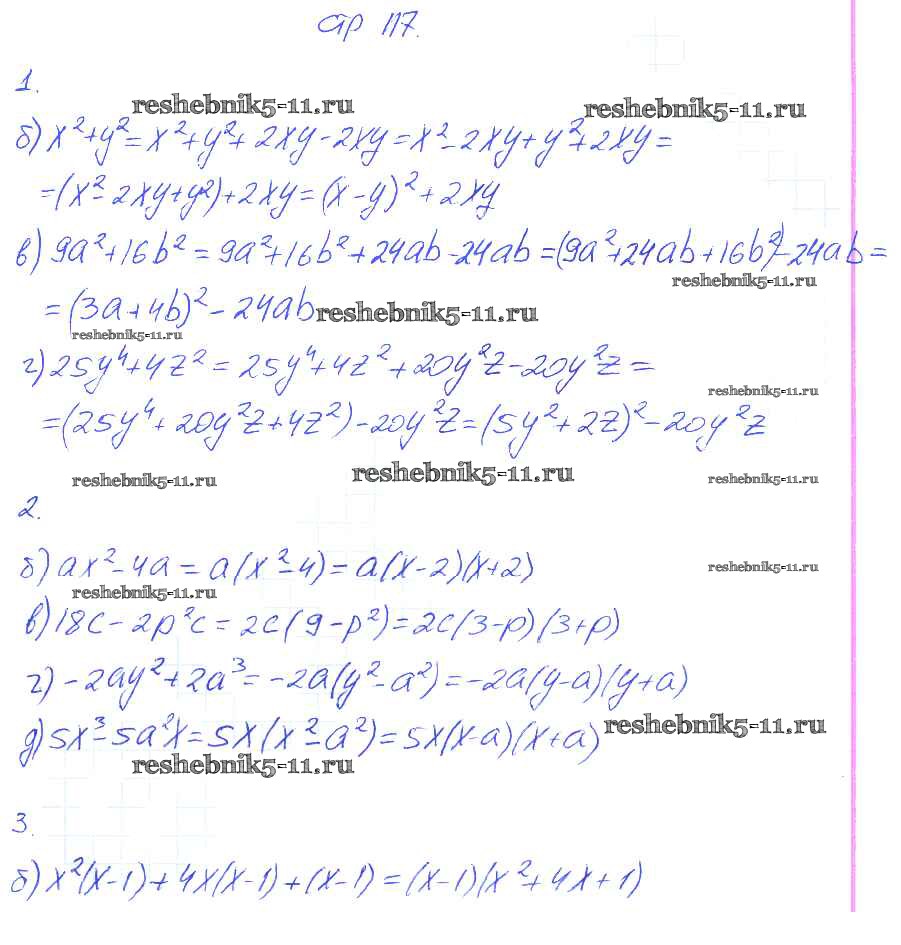 стр 117.
1.
reshebnik5-11.ru reshebnik5-11.ru
б) x²+y² = x²+y²+2xy-2xy = x²-2xy+y²+2xy =
=(x²-2xy+y²)+2xy = (x-y)²+2xy
в) 9a²+16b² = 9a²+16b²+24ab-24ab =(9a²+24ab+16b²)-24ab =
reshebnik5-11.ru
= (3a+4b)²-24ab reshebnik5-11.ru
reshebnik5-11.ru
г) 25y⁴+4z² = 25y⁴+4z²+20y²z-20y²z =
reshebnik5-11.ru
=(25y⁴+20y²z+4z²)-20y²z = (5y²+2z)²-20y²z
reshebnik5-11.ru reshebnik5-11.ru reshebnik5-11.ru
2.
б) ax²-4a = a(x²-4) = a(x-2)(x+2)
reshebnik5-11.ru
reshebnik5-11.ru
в) 18c-2p²c = 2c(9-p²) = 2c(3-p)(3+p)
г) -2ay²+2a³ = -2a(y²-a²) = -2a(y-a)(y+a)
д) 5x³-5a²x = 5x(x²-a²) = 5x(x-a)(x+a) reshebnik5-11.ru
reshebnik5-11.ru
3.
б) x²(x-1)+4x(x-1)+(x-1) = (x-1)(x²+4x+1)